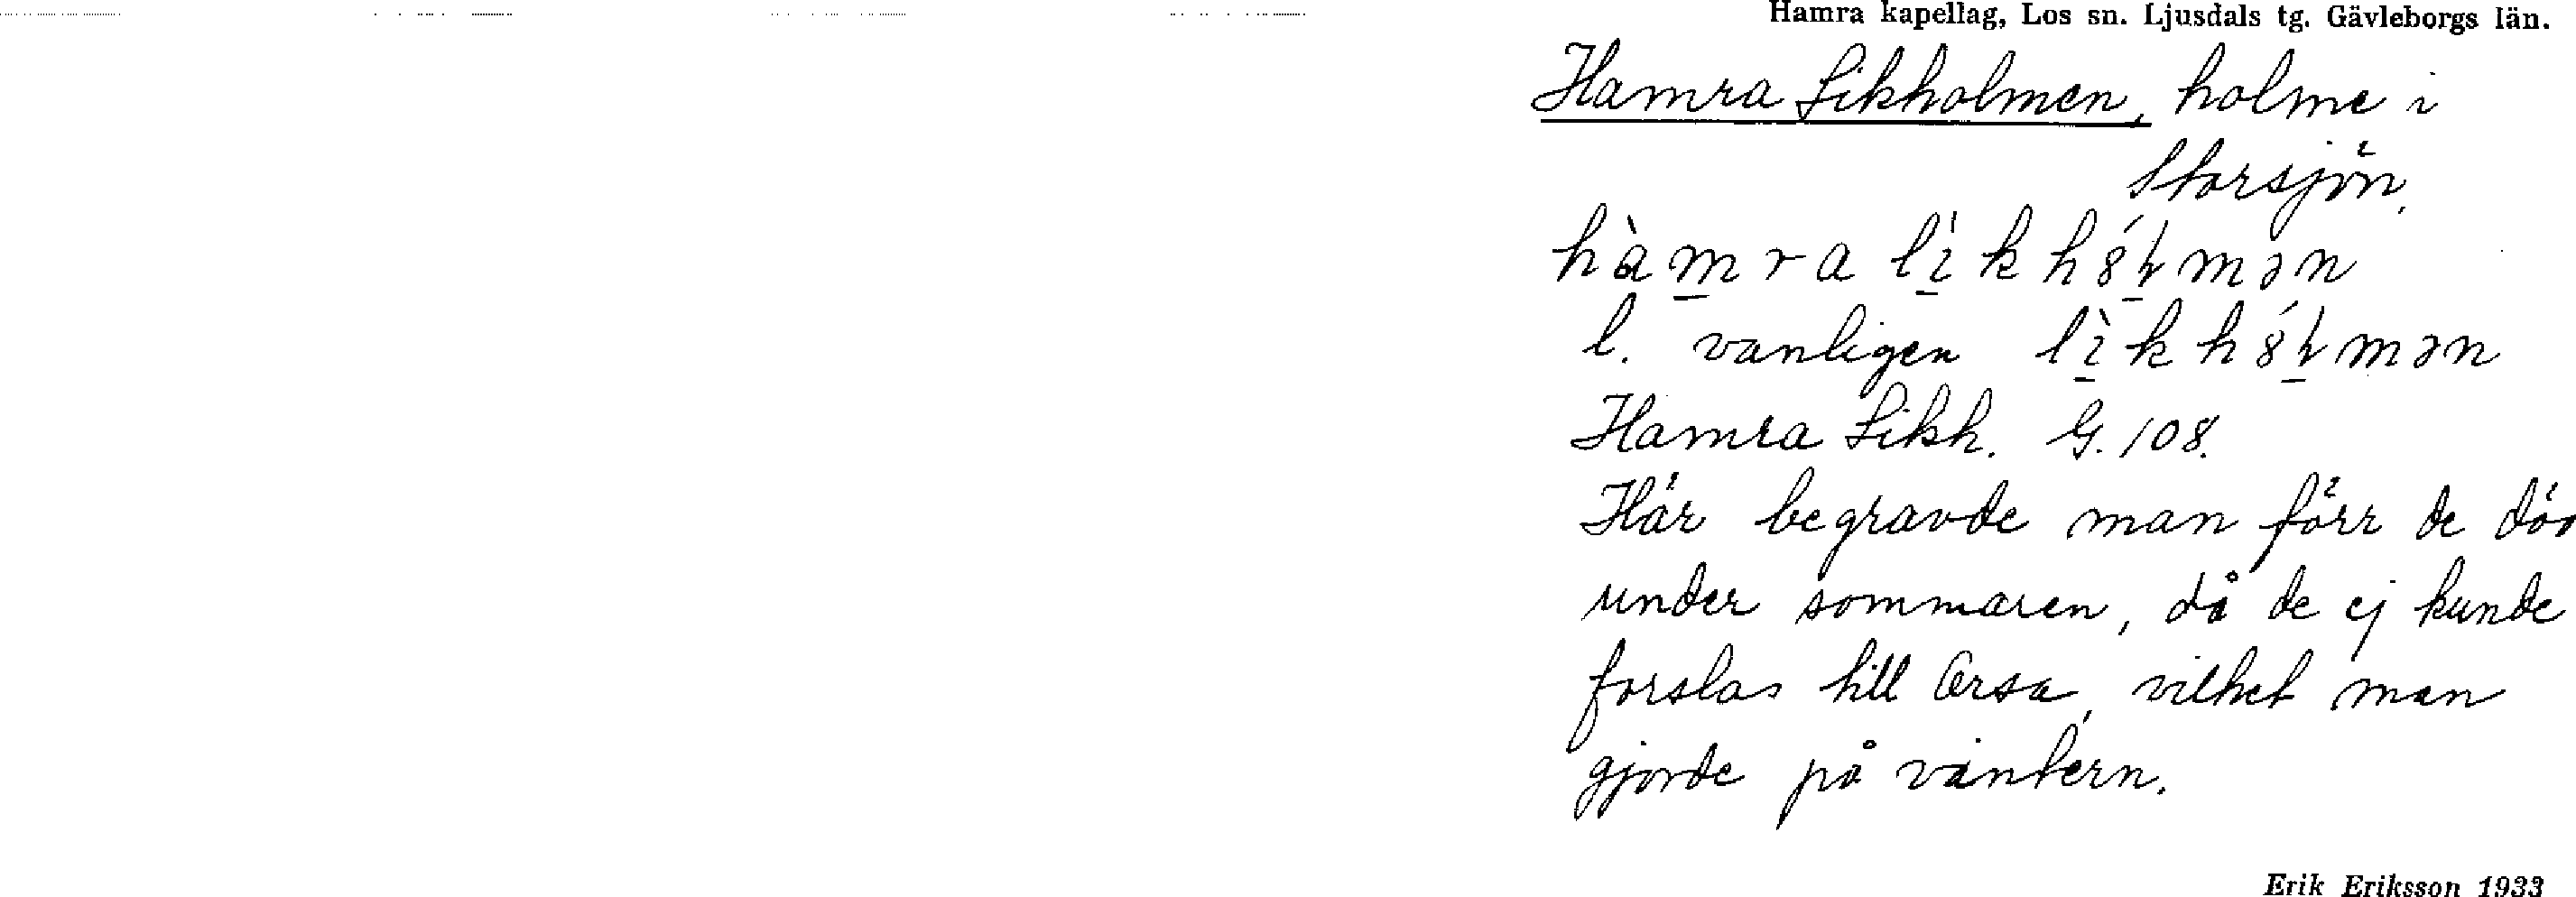 Hamra kapellag, Los sn. Ljusdals tg. Gävleborgs län.
Hamra Likholmen, holme i
Storsjön.
hàmra lìkhólmən
l. vanligen lìkhólmən
Hamra Likh. G. 108.
Här begravde man förr de dö
under sommaren, då de ej kunde
forslas till Orsa, vilket man
gjorde på vintern.
Erik Eriksson 1933